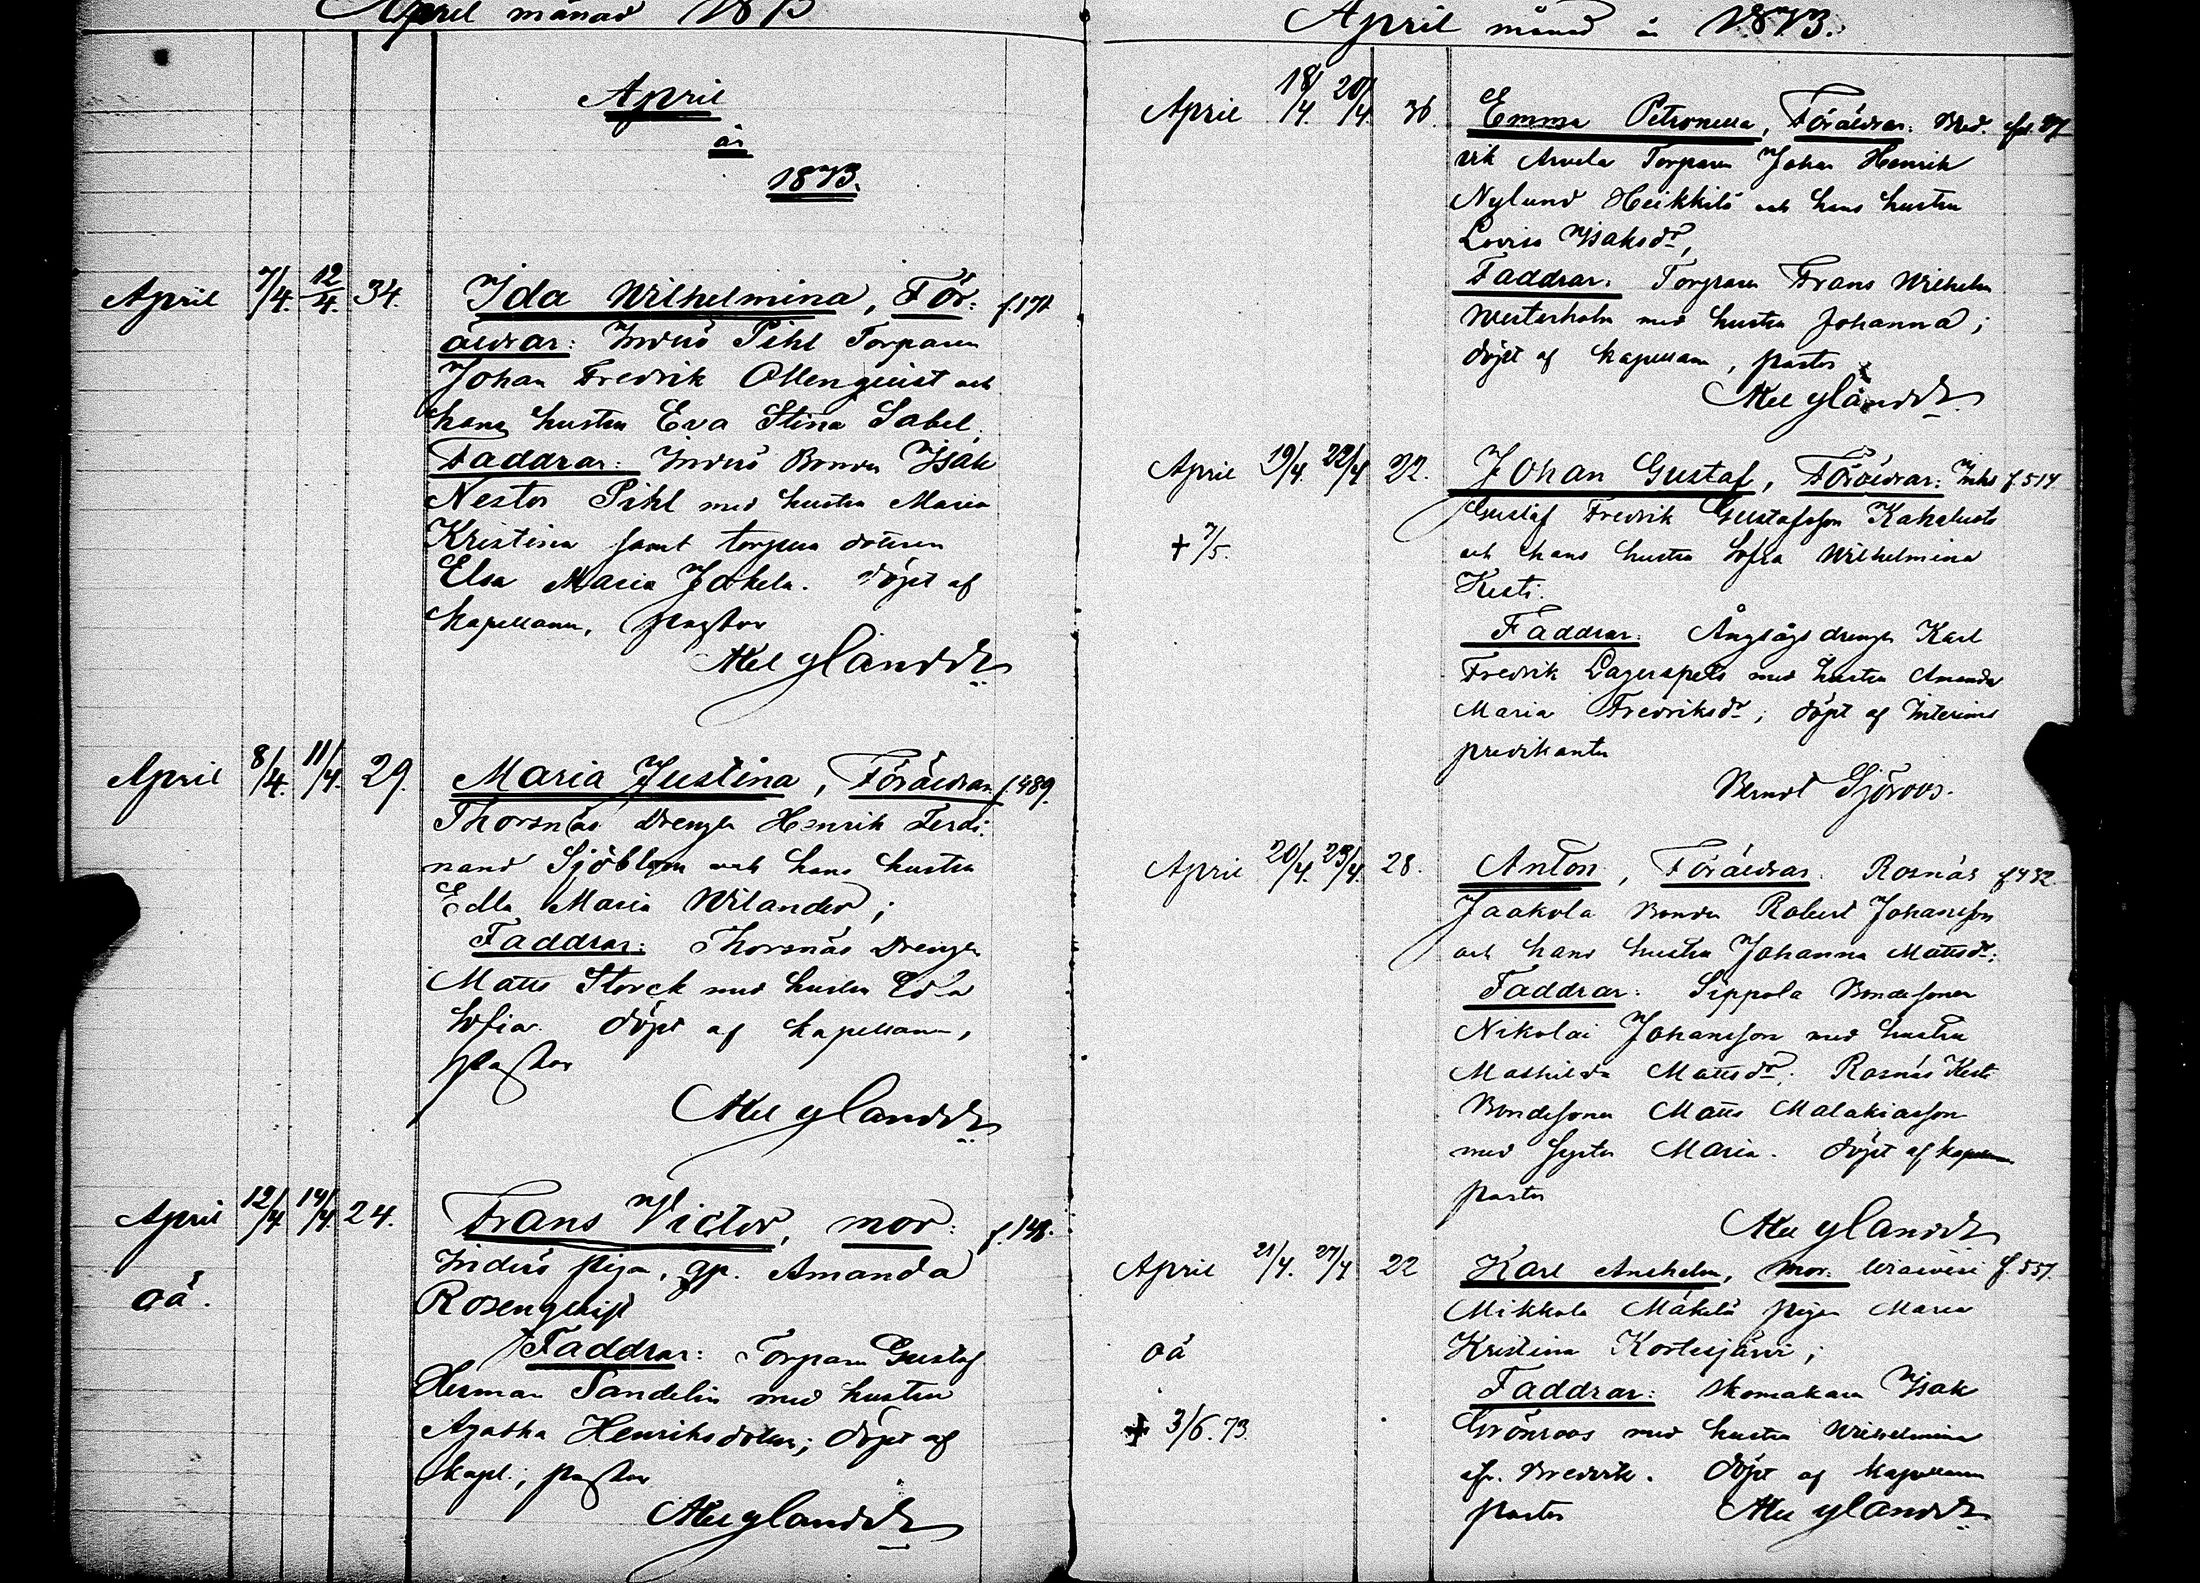 April månad 1873
April
år
1873.
April 7/4. 12/4. 34. Ida Wilhelmina, För- f. 171
äldrar: Inderö Pihl Torparen
Johan Fredrik Ollenqvist och
hans hustru Eva Stina Sabel.
Faddrar: Inderö Bonden Isak
Nestor Pihl med hustru Maria
Kristina samt torpare dottren
Elsa Maria Jakela. Döpt af
kapellanen, pastor
Axel Ylander
April 8/4. 11/4. 29. Maria Justina, Föräldrar f. 489.
Thorsnäs Drengen Henrik Ferdi-
nand Sjöblom och hans hustru
Edla Maria Wilander;
Faddrar: Thorsnäs Drengen
Matts Storck med hustru Eva
Sofia. Döpt af kapellanen,
pastor
Axel Ylander
April 12/4 14/4 24. Frans Victor, mor: f. 148.
Inderö piga, Amanda
Rosenqvist
oä.
Faddrar: Torparen Gustaf
Herman Sandelin med hustru
Agatha Henriksdotter; döpt af
kapl., pastor
Axel Ylander
April månad år 1873.
April 18/4. 20/4 36. Emma Petronella, Föräldrar: Bred-
vik Torparen Johan Henrik
Nylund Heikkilä och hans hustru
Lovisa Isaksdr,
Faddrar: Torparen Frans Wilhelm
Westerholm med hustru Johanna;
döpt af kapellanen, pastor
Axel Ylander
April 19/4. 22/4 22. Johan Gustaf, Föräldrar: Inhs f. 514
Gustaf Fredrik Gustafsson Kahaluoto
+ 7/5. och hans hustru Sofia Wilhelmina
Kesti.
Faddrar: Ångsågs drengen Karl
Fredrik Lagerspets med hustru Amanda
Maria Fredriksdr; döpt af Interims
predikanten
Berndt Sjöroos.
April 20/4. 23/4. 28. Anton, Föräldrar. Rosnäs f. 432
Jaakola Bonden Robert Johansson
och hans hustru Johanna Mattsdr;
Faddrar: Seppola Bondesonen
Nikolai Johansson med hustru
Mathilda Mattsdr; Rosnäs Kesti
Bondesonen Matts Malakiasson
med syster Maria. Döpt af kapellanen
pastor
Axel Ylander
April 21/4. 27/4 22 Karl Anshelm, mor: f. 557.
Mikkola Mäkelä pigan Maria
oä Kristina Kortesjärvi;
Faddrar: Skomakaren Isak
+ 3/6. 73. Grönroos med hustru Wilhelmina
Bredvik. Döpt af kapellanen
pastor Axel Ylander